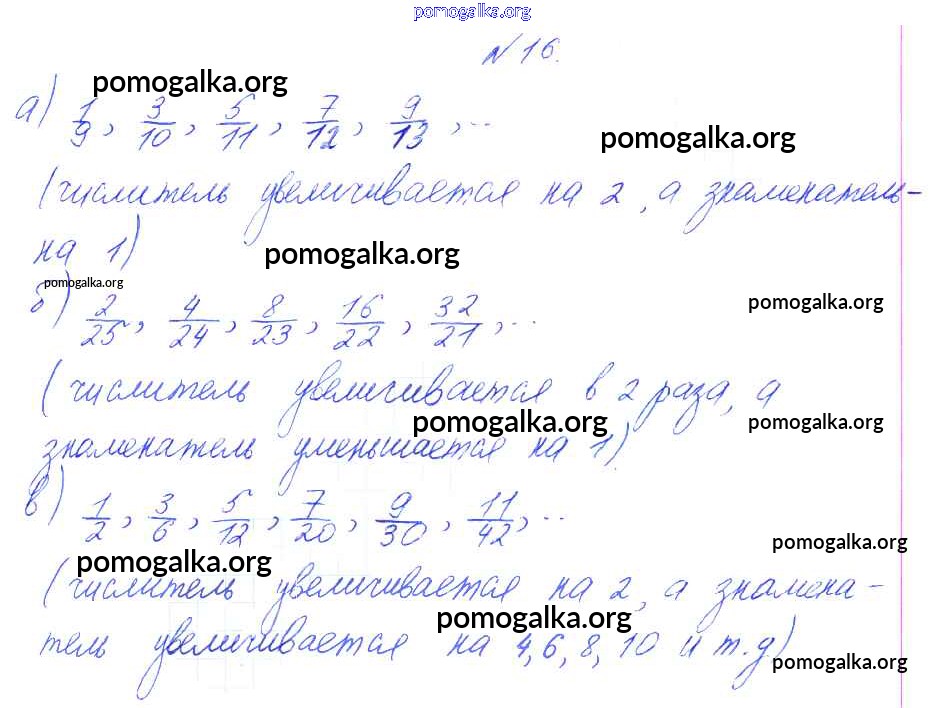 pomogalka.org
№ 16.
pomogalka.org
а) 1/9, 3/10, 5/11, 7/12, 9/13, ...
pomogalka.org
(числитель увеличивается на 2, а знаменатель-
на 1)
pomogalka.org
pomogalka.org
б) 2/25, 4/24, 8/23, 16/22, 32/21, ...
pomogalka.org
(числитель увеличивается в 2 раза, а
pomogalka.org
pomogalka.org
знаменатель уменьшается на 1)
в) 1/2, 3/6, 5/12, 7/20, 9/30, 11/42, ...
pomogalka.org
pomogalka.org
(числитель увеличивается на 2, а знамена-
pomogalka.org
тель увеличивается на 4, 6, 8, 10 и т.д)
pomogalka.org